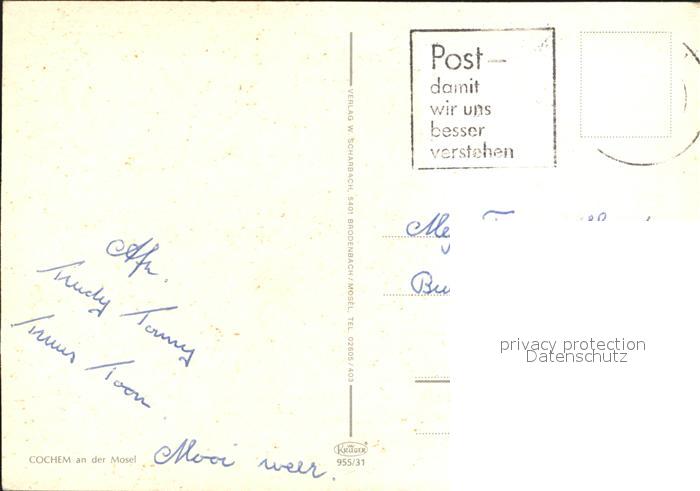 Post –
damit
wir uns
besser
verstehen
VERLAG W. SCHARBACH, 5401 BRODENBACH / MOSEL, TEL. 02605 / 403
Afz.
Trudy Tonny
Truus Toon.
Mooi weer.
COCHEM an der Mosel
Krüger
955/31
privacy protection
Datenschutz